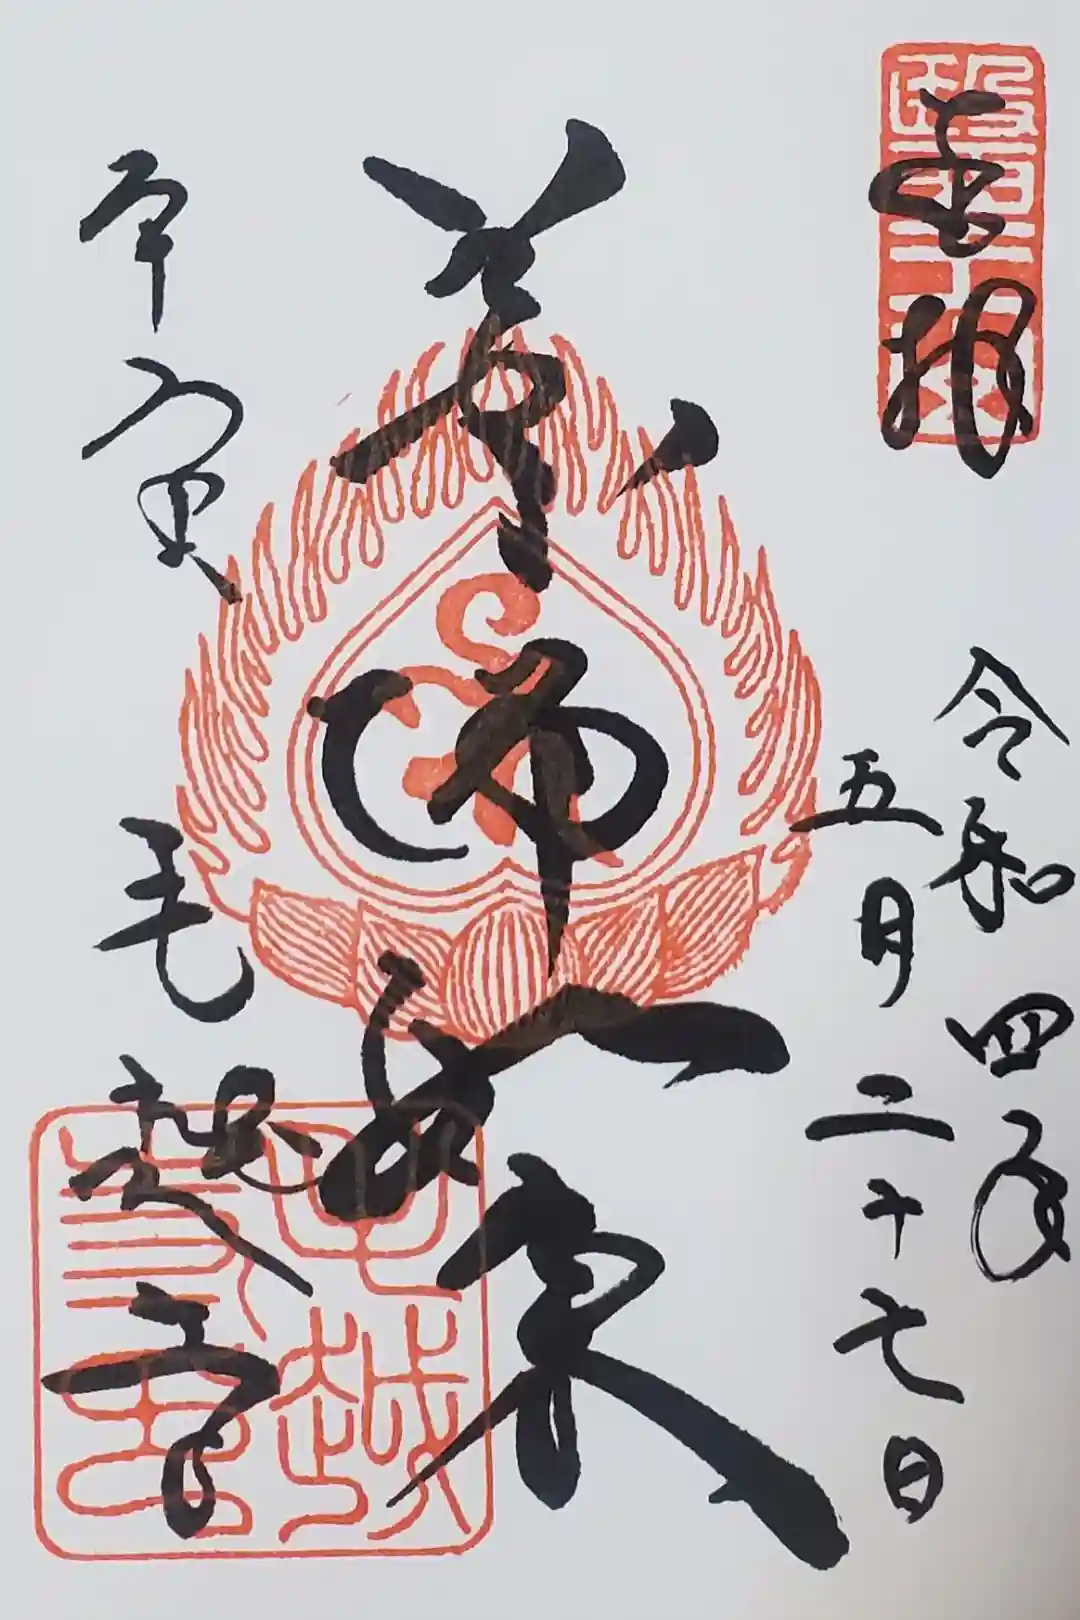 奉拝
令和四年
五月二十七日
薬師如来
平泉
毛越寺